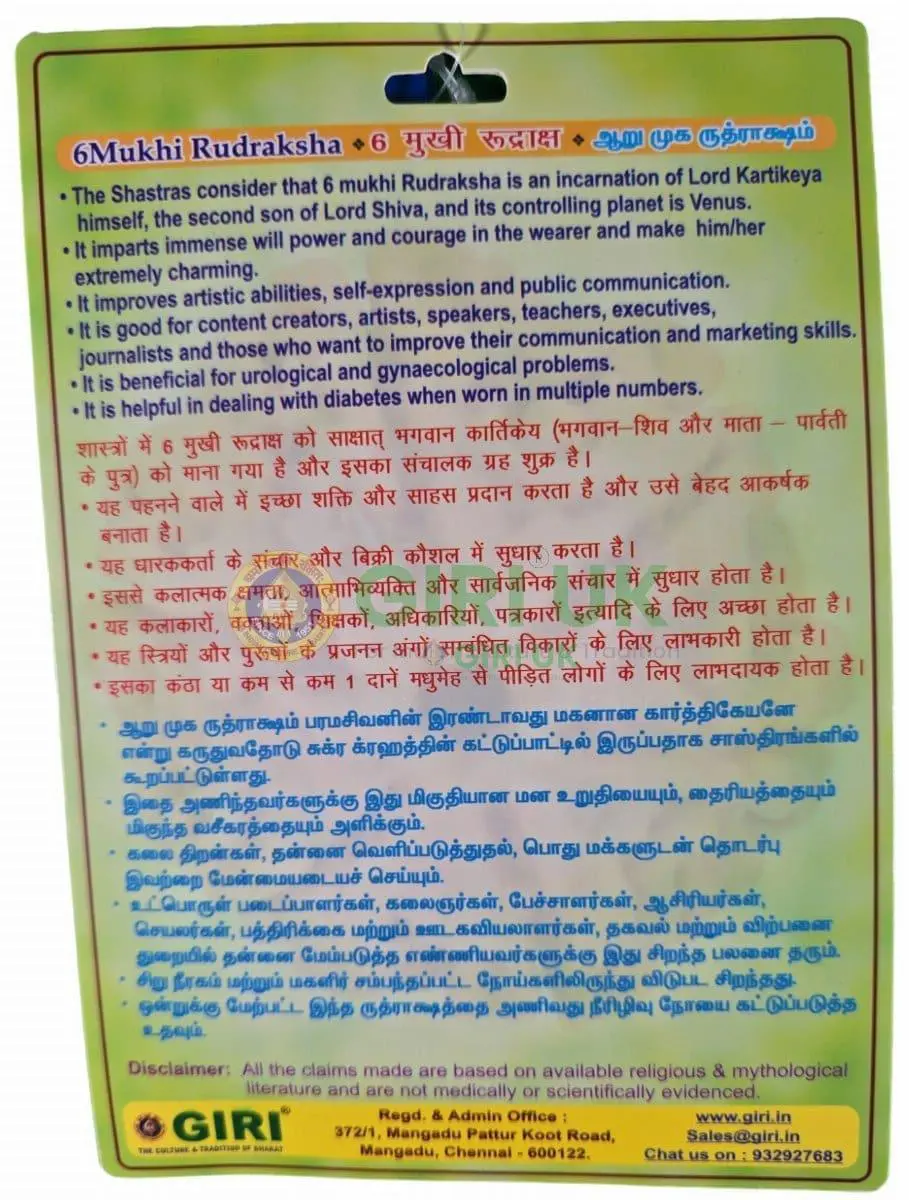 6Mukhi Rudraksha ❖ 6 मुखी रूद्राक्ष ❖ ஆறு முக ருத்ராக்ஷம்
• The Shastras consider that 6 mukhi Rudraksha is an incarnation of Lord Kartikeya
himself, the second son of Lord Shiva, and its controlling planet is Venus.
• It imparts immense will power and courage in the wearer and make him/her
extremely charming.
• It improves artistic abilities, self-expression and public communication.
• It is good for content creators, artists, speakers, teachers, executives,
journalists and those who want to improve their communication and marketing skills.
• It is beneficial for urological and gynaecological problems.
• It is helpful in dealing with diabetes when worn in multiple numbers.
शास्त्रों में 6 मुखी रूद्राक्ष को साक्षात् भगवान कार्तिकेय (भगवान–शिव और माता – पार्वती
के पुत्र) को माना गया है और इसका संचालक ग्रह शुक्र है।
• यह पहनने वाले में इच्छा शक्ति और साहस प्रदान करता है और उसे बेहद आकर्षक
बनाता है।
• यह धारककर्ता के संचार और बिक्री कौशल में सुधार करता है।
• इससे कलात्मक क्षमता, आत्माभिव्यक्ति और सार्वजनिक संचार में सुधार होता है।
• यह कलाकारों, वक्ताओं, शिक्षकों, अधिकारियों, पत्रकारों इत्यादि के लिए अच्छा होता है।
• यह स्त्रियों और पुरूषों के प्रजनन अंगों सम्बंधित विकारों के लिए लाभकारी होता है।
• इसका कंठा या कम से कम 1 दानें मधुमेह से पीड़ित लोगों के लिए लाभदायक होता है।
GIRI UK
GIRI UK
Tradition
• ஆறு முக ருத்ராக்ஷம் பரமசிவனின் இரண்டாவது மகனான கார்த்திகேயனே
என்று கருதுவதோடு சுக்ர க்ரஹத்தின் கட்டுப்பாட்டில் இருப்பதாக சாஸ்திரங்களில்
கூறப்பட்டுள்ளது.
• இதை அணிந்தவர்களுக்கு இது மிகுதியான மன உறுதியையும், தைரியத்தையும்
மிகுந்த வசீகரத்தையும் அளிக்கும்.
• கலை திறன்கள், தன்னை வெளிப்படுத்துதல், பொது மக்களுடன் தொடர்பு
இவற்றை மேன்மையடையச் செய்யும்.
• உட்பொருள் படைப்பாளர்கள், கலைஞர்கள், பேச்சாளர்கள், ஆசிரியர்கள்,
செயலர்கள், பத்திரிக்கை மற்றும் ஊடகவியலாளர்கள், தகவல் மற்றும் விற்பனை
துறையில் தன்னை மேம்படுத்த எண்ணியவர்களுக்கு இது சிறந்த பலனை தரும்.
• சிறு நீரகம் மற்றும் மகளிர் சம்பந்தப்பட்ட நோய்களிலிருந்து விடுபட சிறந்தது.
• ஒன்றுக்கு மேற்பட்ட இந்த ருத்ராக்ஷத்தை அணிவது நீரிழிவு நோயை கட்டுப்படுத்த
உதவும்.
Disclaimer: All the claims made are based on available religious & mythological
literature and are not medically or scientifically evidenced.
GIRI®
THE CULTURE & TRADITION OF BHARAT
Regd. & Admin Office :
372/1, Mangadu Pattur Koot Road,
Mangadu, Chennai - 600122.
www.giri.in
Sales@giri.in
Chat us on : 932927683